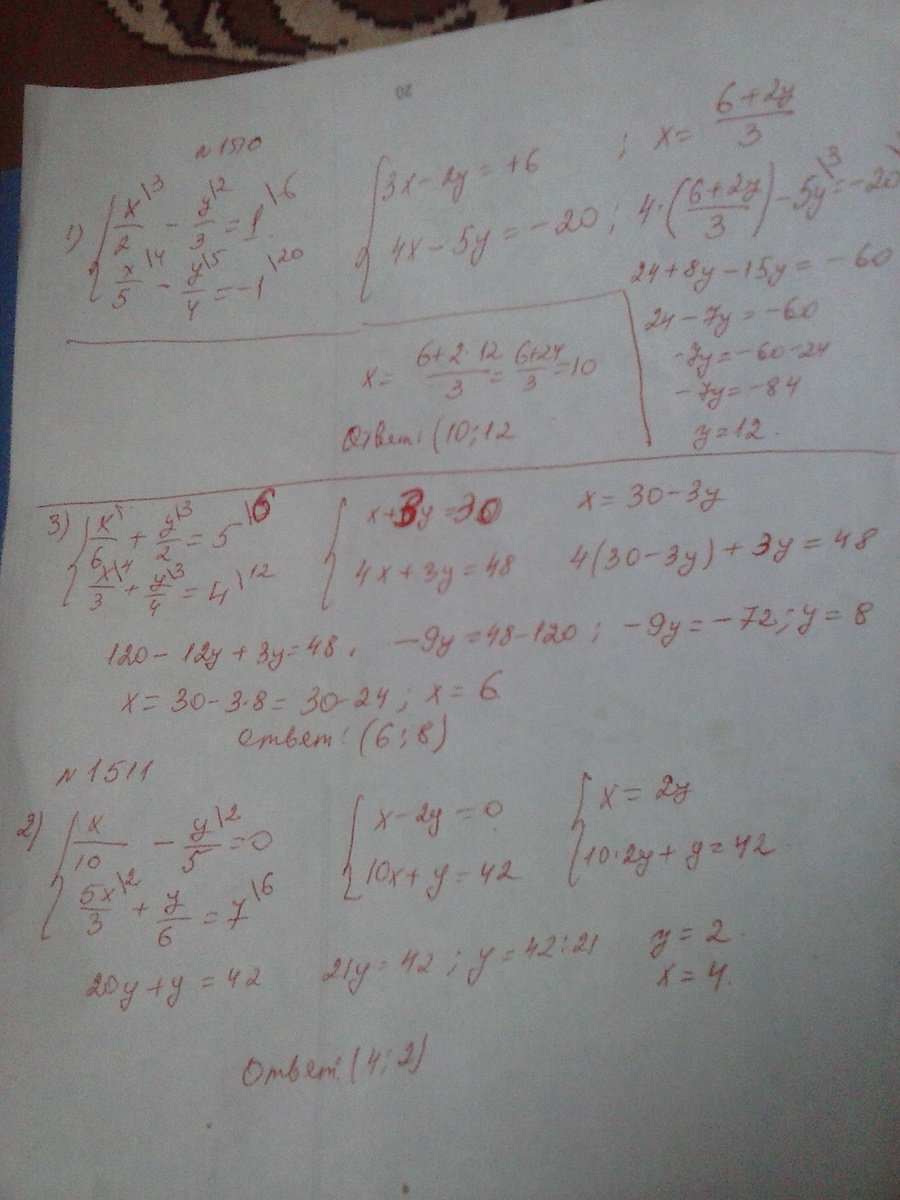 20
№ 1510
1) { x/2 \3 − y/3 \2 = 1 \6 { 3x − 2y = +6 ; x = (6+2y)/3
x/5 \4 − y/4 \5 = −1 \20 4x − 5y = −20 ; 4·((6+2y)/3) − 5y \3 = −20
24 + 8y − 15y = −60
24 − 7y = −60
−7y = −60−24
−7y = −84
y = 12.
x = (6+2·12)/3 = (6+24)/3 = 10
Ответ: (10; 12
3) { x/6 + y/2 \3 = 5 \6 { x + 3y = 30 x = 30 − 3y
x/3 \4 + y/4 \3 = 4 \12 4x + 3y = 48 4(30−3y) + 3y = 48
120 − 12y + 3y = 48. −9y = 48−120 ; −9y = −72 ; y = 8
x = 30 − 3·8 = 30−24 ; x = 6
Ответ: (6; 8)
№ 1511
2) { x/10 − y/5 \2 = 0 { x − 2y = 0 { x = 2y
5x/3 \2 + y/6 = 7 \6 10x + y = 42 10·2y + y = 42
20y + y = 42 21y = 42 ; y = 42:21 y = 2.
x = 4.
Ответ: (4; 2)